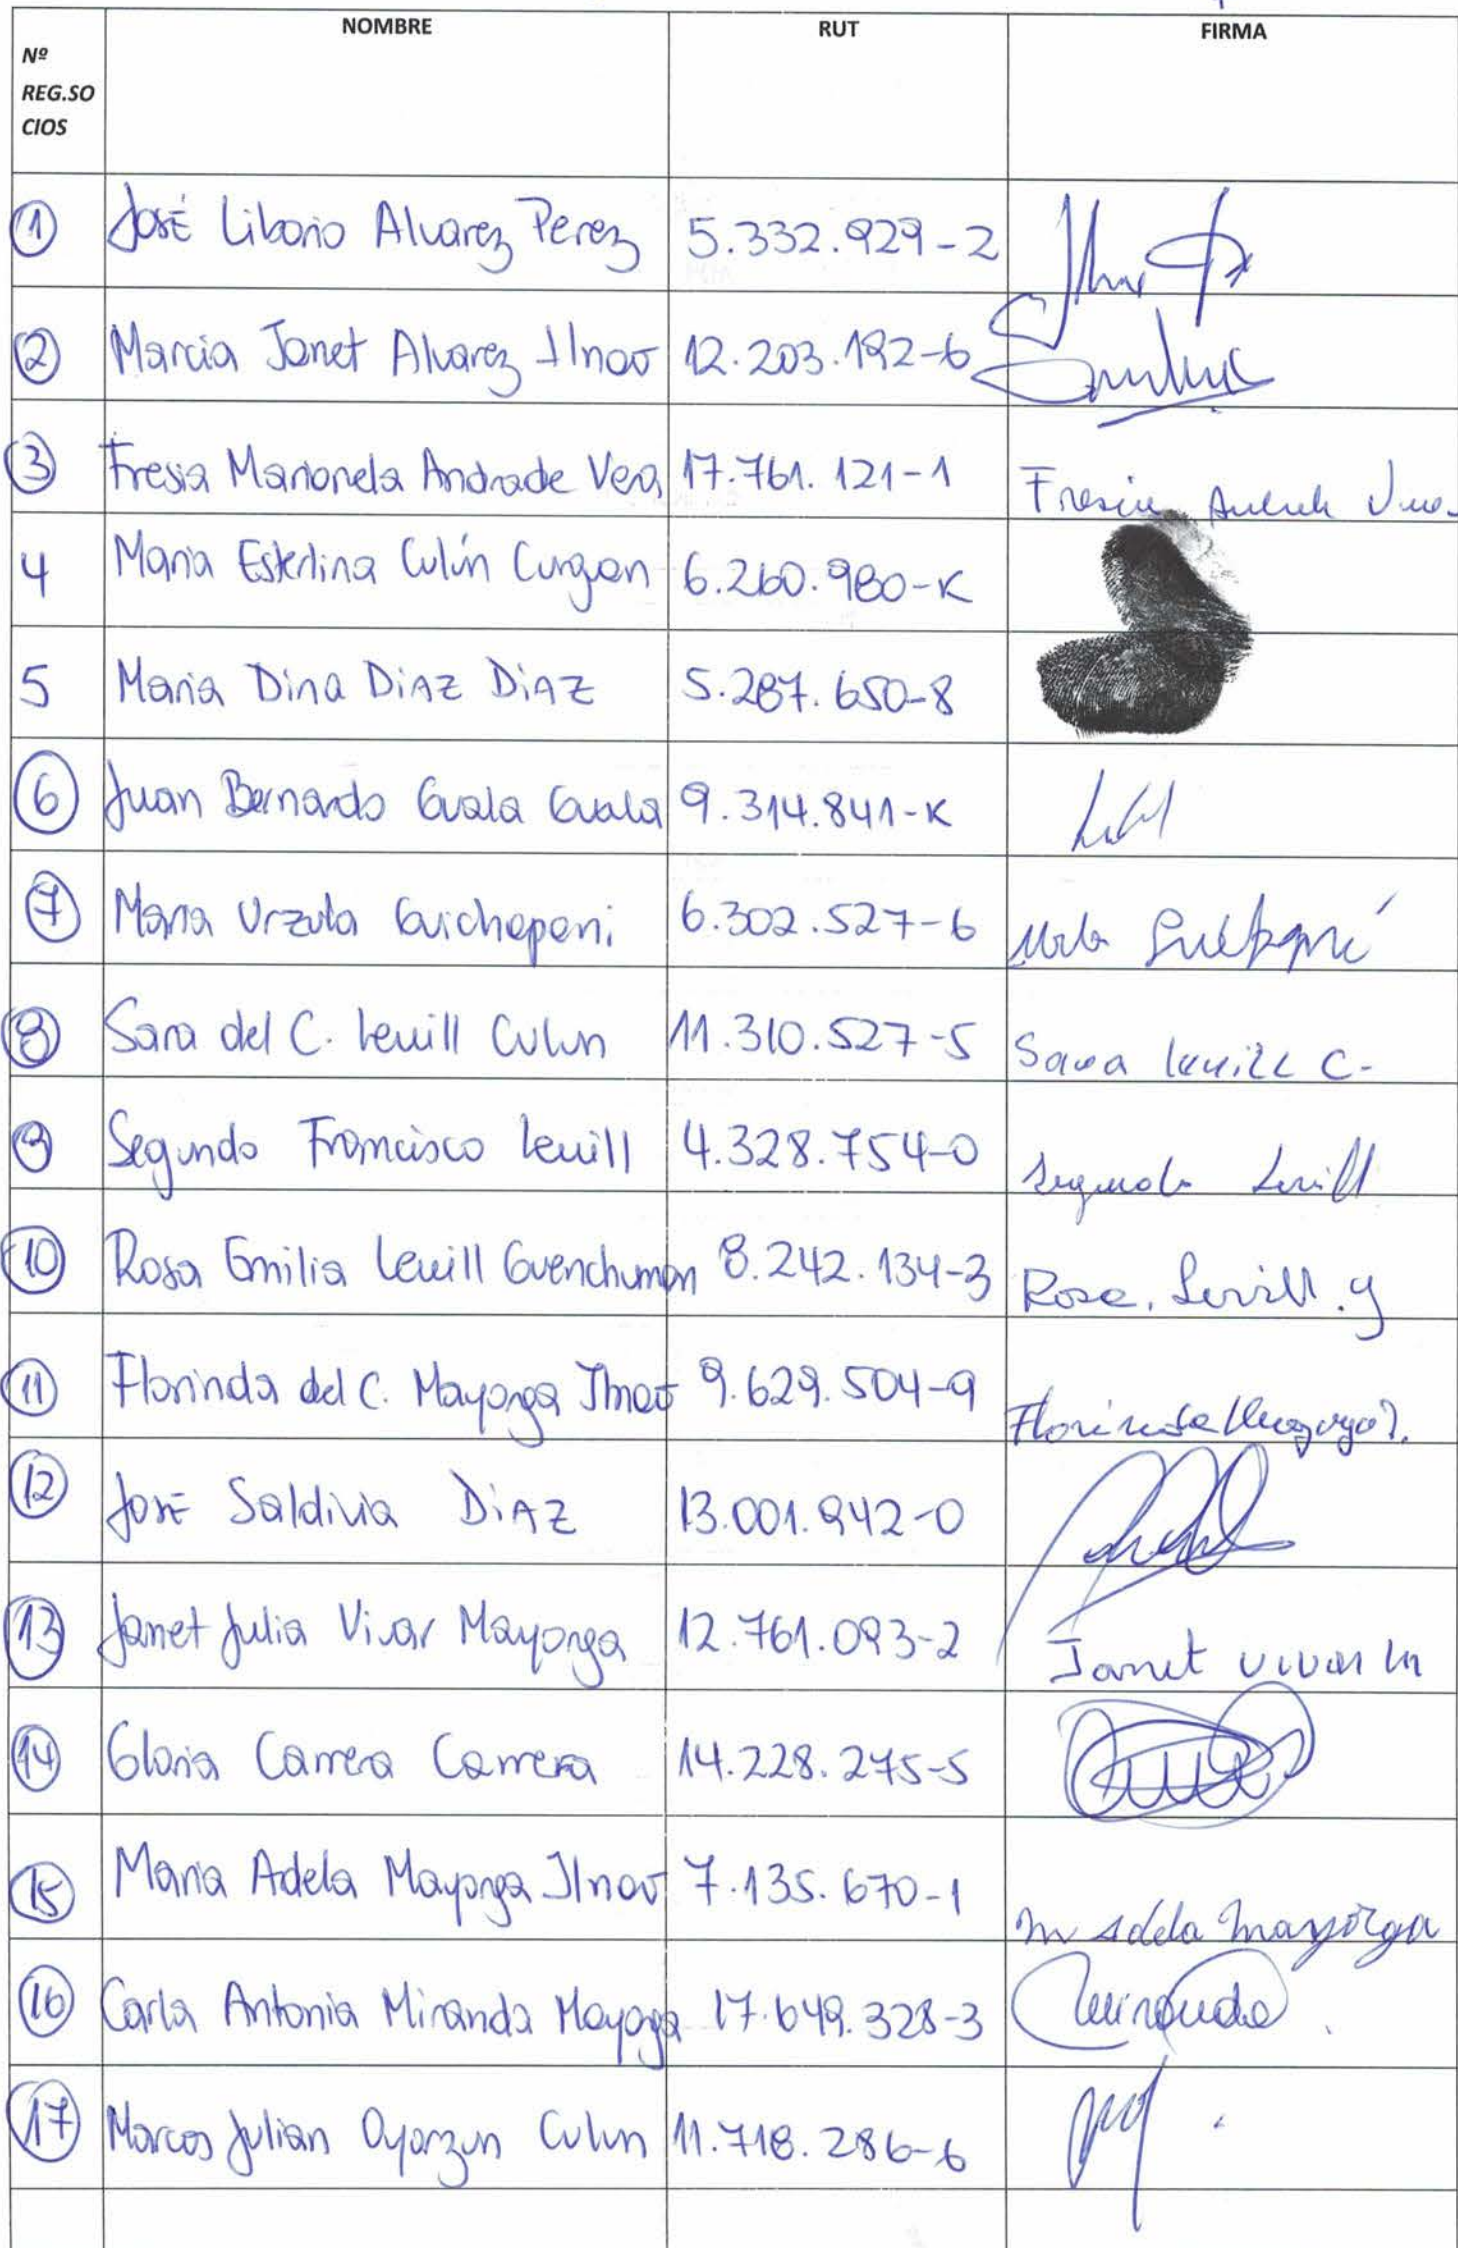 Nº REG.SO CIOS NOMBRE RUT FIRMA
1 José Liborio Alvarez Perez 5.332.929-2
2 Marcia Janet Alvarez 12.203.192-6
3 Fresia Marianela Andrade Vera 17.761.121-1 Fresia
4 Maria Esterlina Culín Curgan 6.260.980-K
5 Maria Dina DiAZ DiAZ 5.287.650-8
6 Juan Bernardo Guala Guala 9.314.841-K
7 Maria Urzula Guichapani 6.302.527-6
8 Sara del C. Levill Culun 11.310.527-5 Sara levill C.
9 Segundo Francisco Levill 4.328.754-0 Segundo Levill
10 Rosa Emilia Levill Guenchuman 8.242.134-3 Rosa. Levill. g
11 Florinda del C. Mayorga 9.629.504-9 Florinda Mayorga
12 José Saldivia DiAZ 13.001.942-0
13 Janet Julia Vivar Mayorga 12.761.093-2 Janet vivar m
14 Gloria Carrera Carrera 14.228.275-5
15 Maria Adela Mayorga Ilnao 7.135.670-1 m Adela mayorga
16 Carla Antonia Miranda Mayorga 17.649.328-3 CMiranda
17 Marcos Julian Oyarzun Culun 11.718.286-6